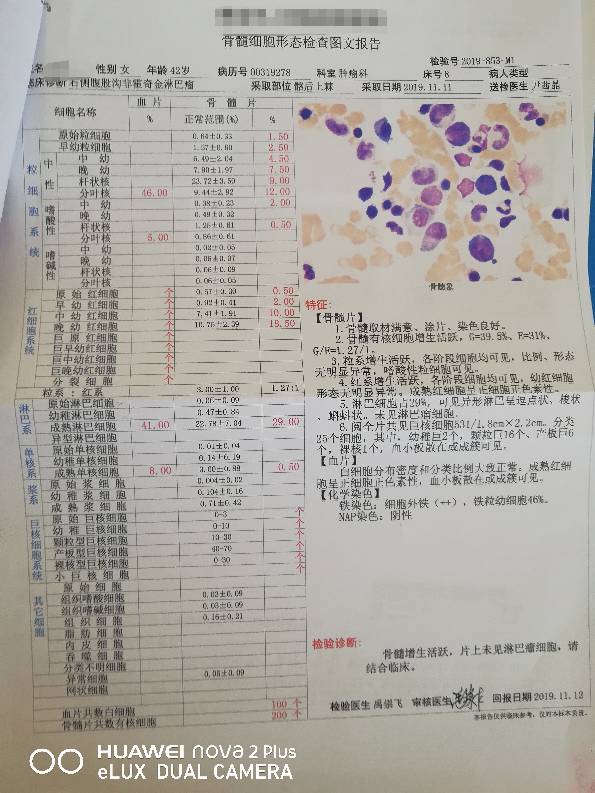 骨髓细胞形态检查图文报告
检验号 2019-853-M1
性别 女 年龄 42岁 病历号 00319278 科室 肿瘤科 床号 8 病人类型
临床诊断 右侧腹股沟非霍奇金淋巴瘤 采取部位 髂后上棘 采取日期 2019.11.11 送检医生
细胞名称 血片 骨髓片
% 正常范围(%) %
粒细胞系统
原始粒细胞 0.64±0.33 1.50
早幼粒细胞 1.57±0.60 2.50
中性
中幼 6.49±2.04 4.50
晚幼 7.90±1.97 7.50
杆状核 23.72±3.50 9.00
分叶核 46.00 9.44±2.92 12.00
嗜酸性
中幼 0.38±0.23 2.00
晚幼 0.49±0.32
杆状核 1.25±0.61 0.50
分叶核 5.00 0.86±0.61
嗜碱性
中幼 0.02±0.05
晚幼 0.06±0.07
杆状核 0.06±0.09
分叶核 0.06±0.05
红细胞系统
原始红细胞 个 0.57±0.30 0.50
早幼红细胞 个 0.92±0.41 2.00
中幼红细胞 个 7.41±1.91 10.00
晚幼红细胞 个 10.75±2.39 18.50
巨原红细胞 个
巨早幼红细胞 个
巨中幼红细胞 个
巨晚幼红细胞 个
分裂细胞 个
粒系：红系 3.00±1.00 1.27:1
淋巴系
原始淋巴细胞 0.05±0.09
幼稚淋巴细胞 0.47±0.84
成熟淋巴细胞 41.00 22.78±7.04 29.00
异型淋巴细胞
单核系
原始单核细胞 0.01±0.04
幼稚单核细胞 0.14±0.19
成熟单核细胞 8.00 3.00±0.88 0.50
浆系
原始浆细胞 0.004±0.02
幼稚浆细胞 0.104±0.16
成熟浆细胞 0.71±0.42
巨核细胞系统
原始巨核细胞 0-3 个
幼稚巨核细胞 0-10 个
颗粒型巨核细胞 10-30 个
产板型巨核细胞 40-70 个
裸核型巨核细胞 0-30 个
小巨核细胞 个
其它细胞
原始细胞
组织嗜酸细胞 0.02±0.09
组织嗜碱细胞 0.03±0.09
组织细胞 0.16±0.21
脂肪细胞
内皮细胞
吞噬细胞
分类不明细胞
异常细胞 0.05±0.09
网状细胞
血片共数白细胞 100 个
骨髓片共数有核细胞 200 个
骨髓象
特征：
【骨髓片】
1. 骨髓取材满意、涂片、染色良好。
2. 骨髓有核细胞增生活跃，G=39.5%、E=31%、
G/E=1.27/1。
3. 粒系增生活跃，各阶段细胞均可见，比例、形态
无明显异常，嗜酸性粒细胞可见。
4. 红系增生活跃，各阶段细胞均可见，幼红细胞
形态无明显异常。成熟红细胞呈正细胞正色素性。
5. 淋巴细胞占29%，可见异形淋巴呈逗点状、梭状
、蝌蚪状。未见淋巴瘤细胞。
6. 阅全片共见巨核细胞531/1.8cm×2.2cm。分类
25个细胞，其中，幼稚巨2个，颗粒巨16个、产板巨6
个，裸核1个，血小板散在或成簇可见。
【血片】
白细胞分布密度和分类比例大致正常。成熟红细
胞呈正细胞正色素性，血小板散在或成簇可见。
【化学染色】
铁染色：细胞外铁（++），铁粒幼细胞46%。
NAP染色：阴性
检验诊断：
骨髓增生活跃，片上未见淋巴瘤细胞，请
结合临床。
检验医生 禹崇飞 审核医生 回报日期 2019.11.12
本报告仅供临床参考，仅对本标本负责。
HUAWEI nova 2 Plus
eLUX DUAL CAMERA